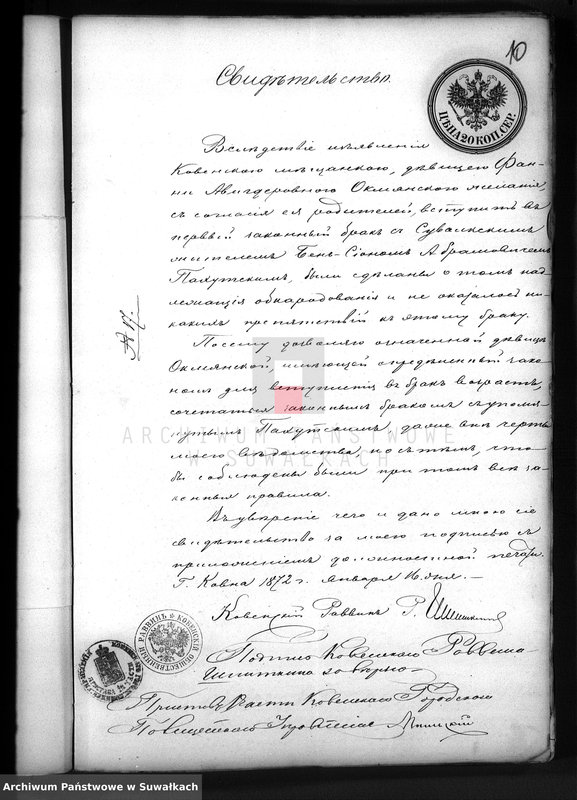 10
Свидѣтельство.
ЦѢНА 20 КОП. СЕР.
Вслѣдствіе изъявленія
Ковенскою мѣщанкою, дѣвицею Фан-
ни Авигдеровною Окмянского желанія,
съ согласія ея родителей, вступить въ
первый законный бракъ съ Сувалкскимъ
жителемъ Бень-Сіономъ Абрамовичемъ
Пахутскимъ, были сдѣланы о томъ над-
лежащія обнародованія и не оказалось ни-
какихъ препятствій къ этому браку.
№ 17.
Посему дозволяю означенной дѣвицѣ
Окмянской, имѣющей опредѣленный зако-
номъ для вступленія въ бракъ возрастъ,
сочетаться законнымъ бракомъ съ упомя-
нутымъ Пахутскимъ, даже внѣ черты
моего вѣдомства, но съ тѣмъ, что-
бы соблюдены были при томъ всѣ за-
конныя правила.
Въ увѣреніе чего и дано мною сіе
свидѣтельство за моею подписью съ
приложеніемъ должностной печати.
Г. Ковна 1872 г. Января 16 дня.
Ковенскій Раввинъ Г. Шлиткинъ
КОВЕНСКІЙ ОБЩЕСТВЕННЫЙ РАВВИНЪ
Подпись Ковенскаго Раввина
завѣряю
Приставъ части Ковенскаго Городскаго
Полицейскаго Управленія
ARCHIWUM PAŃSTWOWE
W SUWAŁKACH
Archiwum Państwowe w Suwałkach